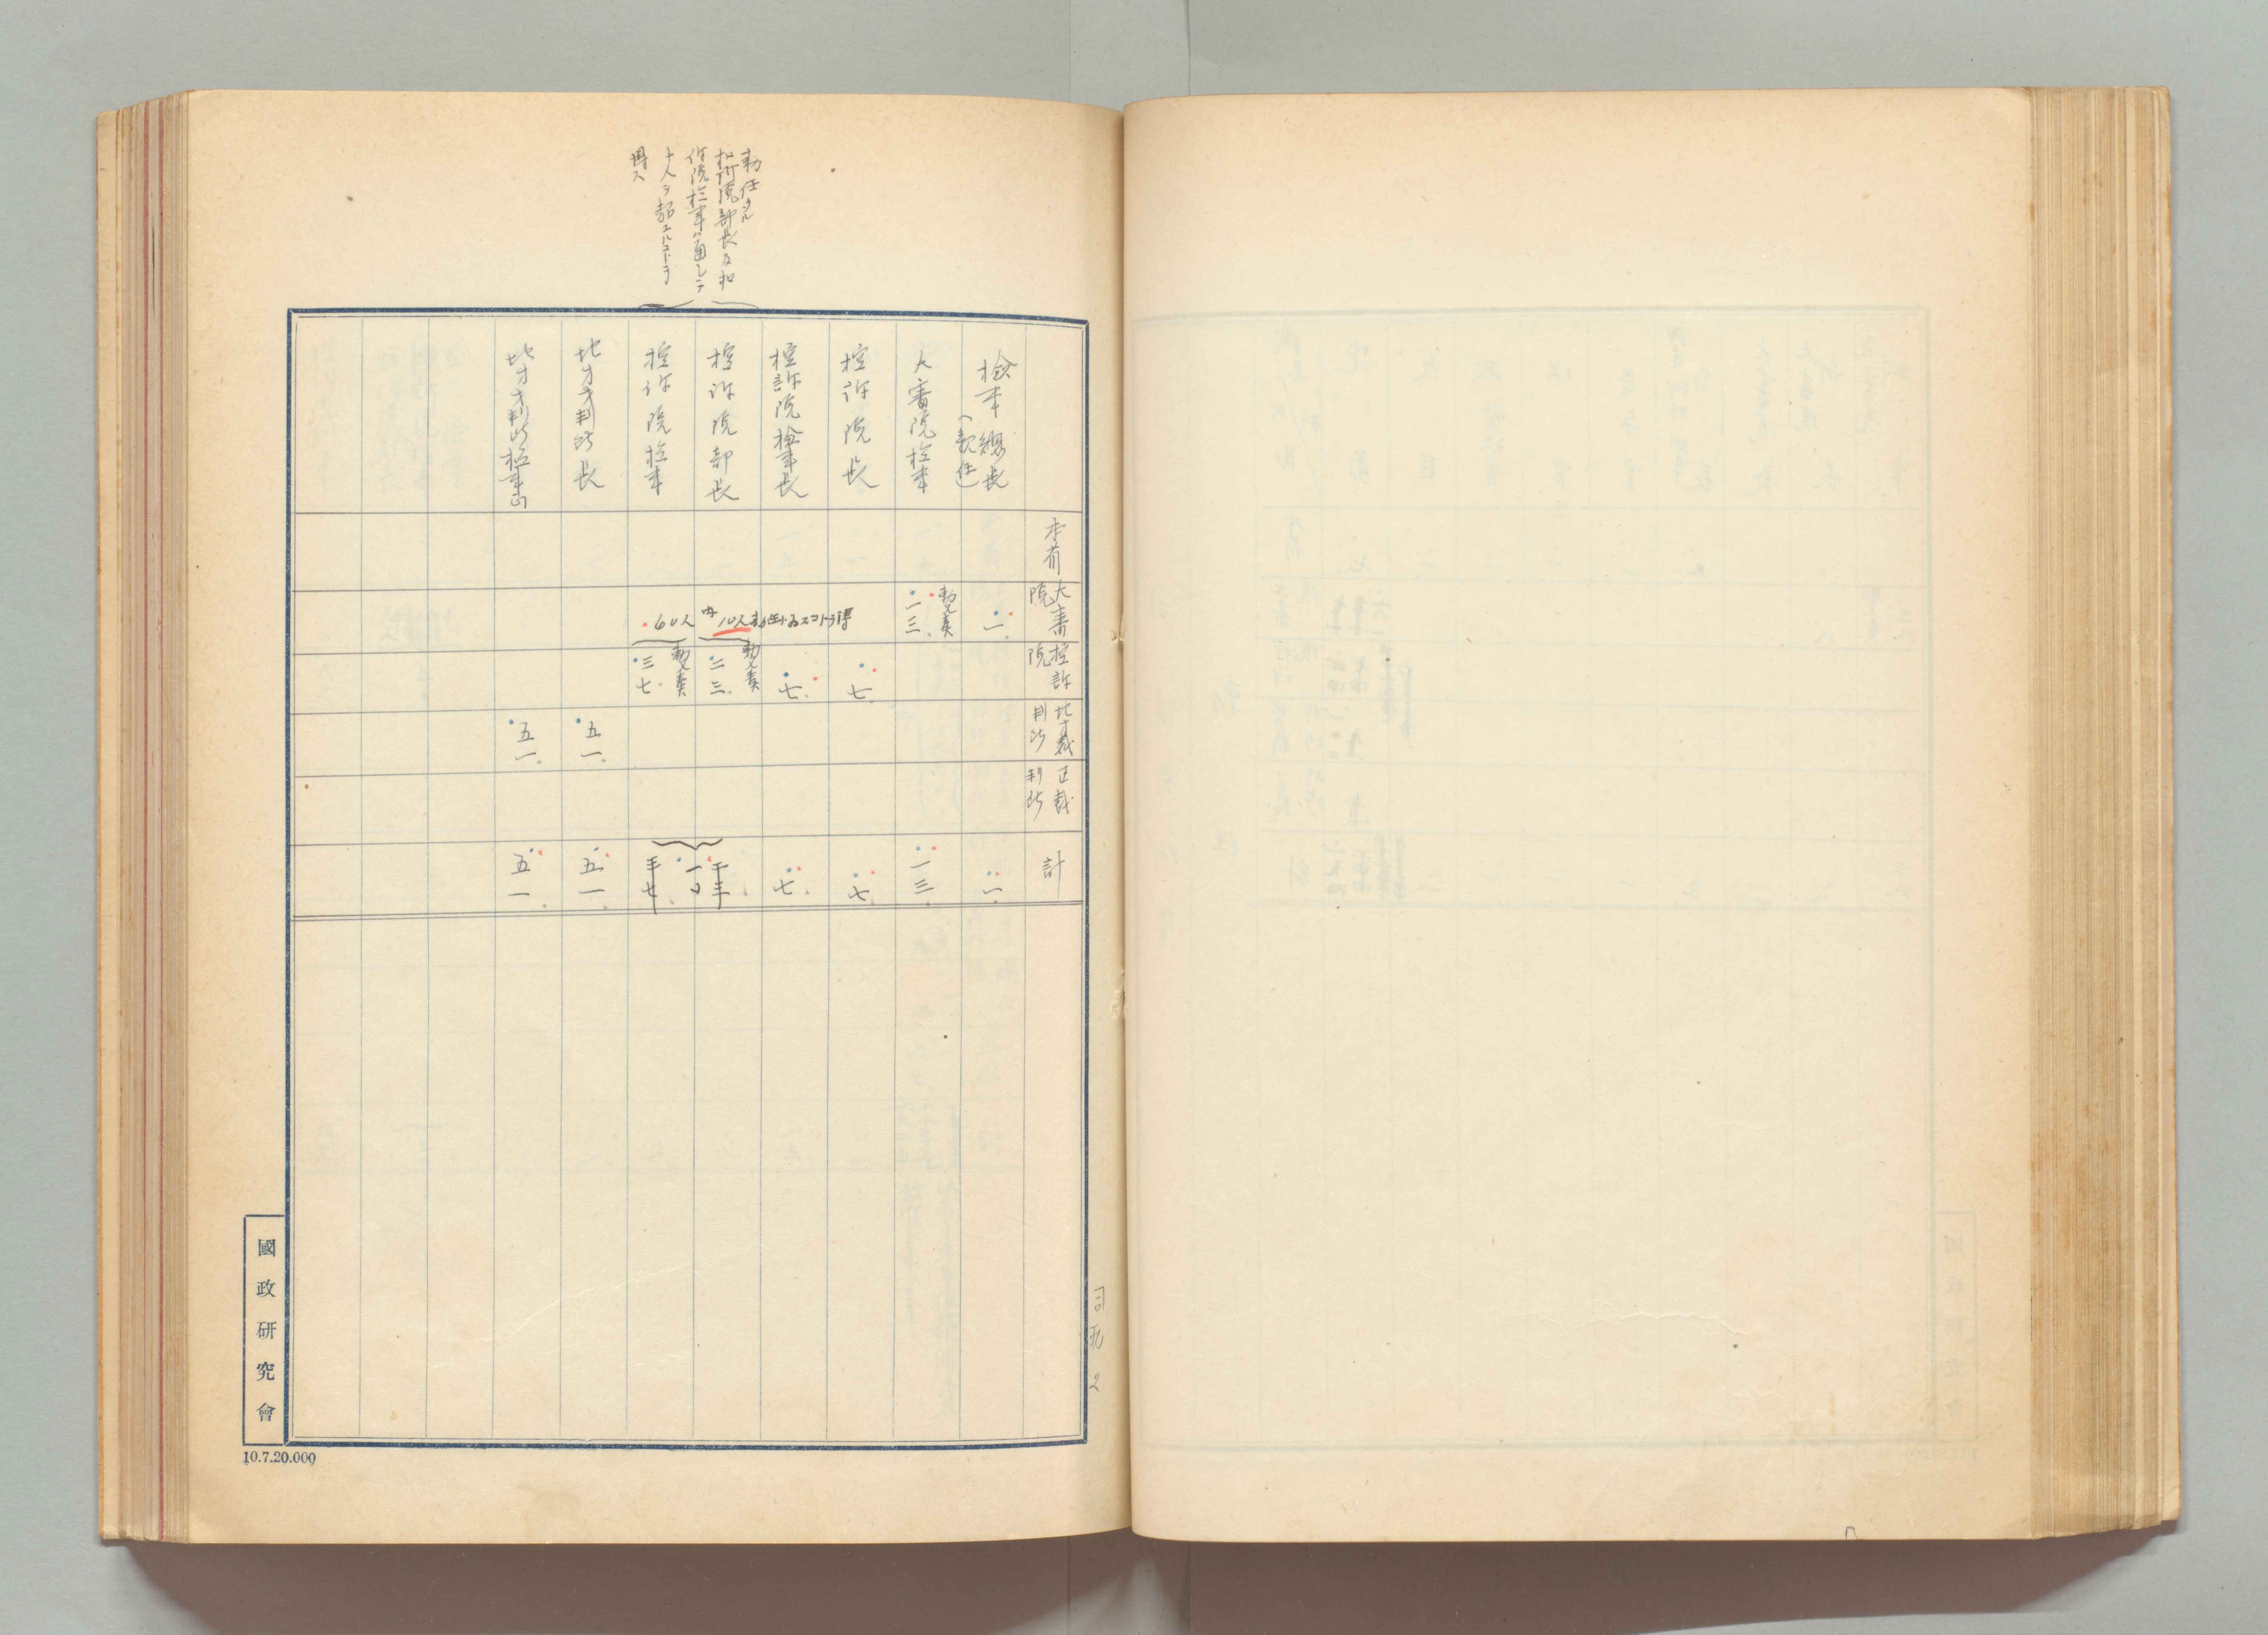 勅任タル
控訴院部長及控
訴院検事ハ通シテ
十人ヲ超ユルコトヲ
得ス
本省
大審院
控訴院
地方裁判所
区裁判所
計
検事総長
(親任)
一
一
大審院検事
勅又奏
一三
一三
控訴院長
七
七
控訴院検事長
七
七
控訴院部長
勅又奏
二三
控訴院検事
勅又奏
三七
60人内10人勅任ト為スコトヲ得
地方裁判所長
五一
五一
地方裁判所検事正
五一
五一
司 現 2
國政研究會
10.7.20.000